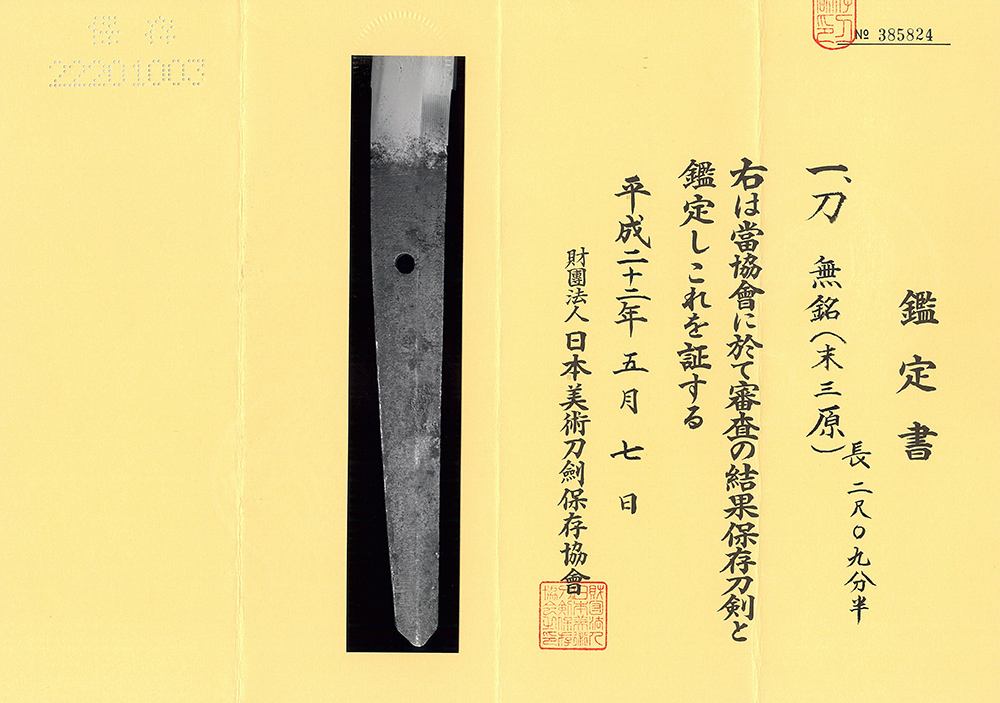 № 385824
鑑定書
一、刀 無銘(末三原)
長二尺〇九分半
右は當協會に於て審査の結果保存刀剣と
鑑定しこれを証する
平成二十二年五月七日
財團法人日本美術刀劍保存協會
保存
22201003